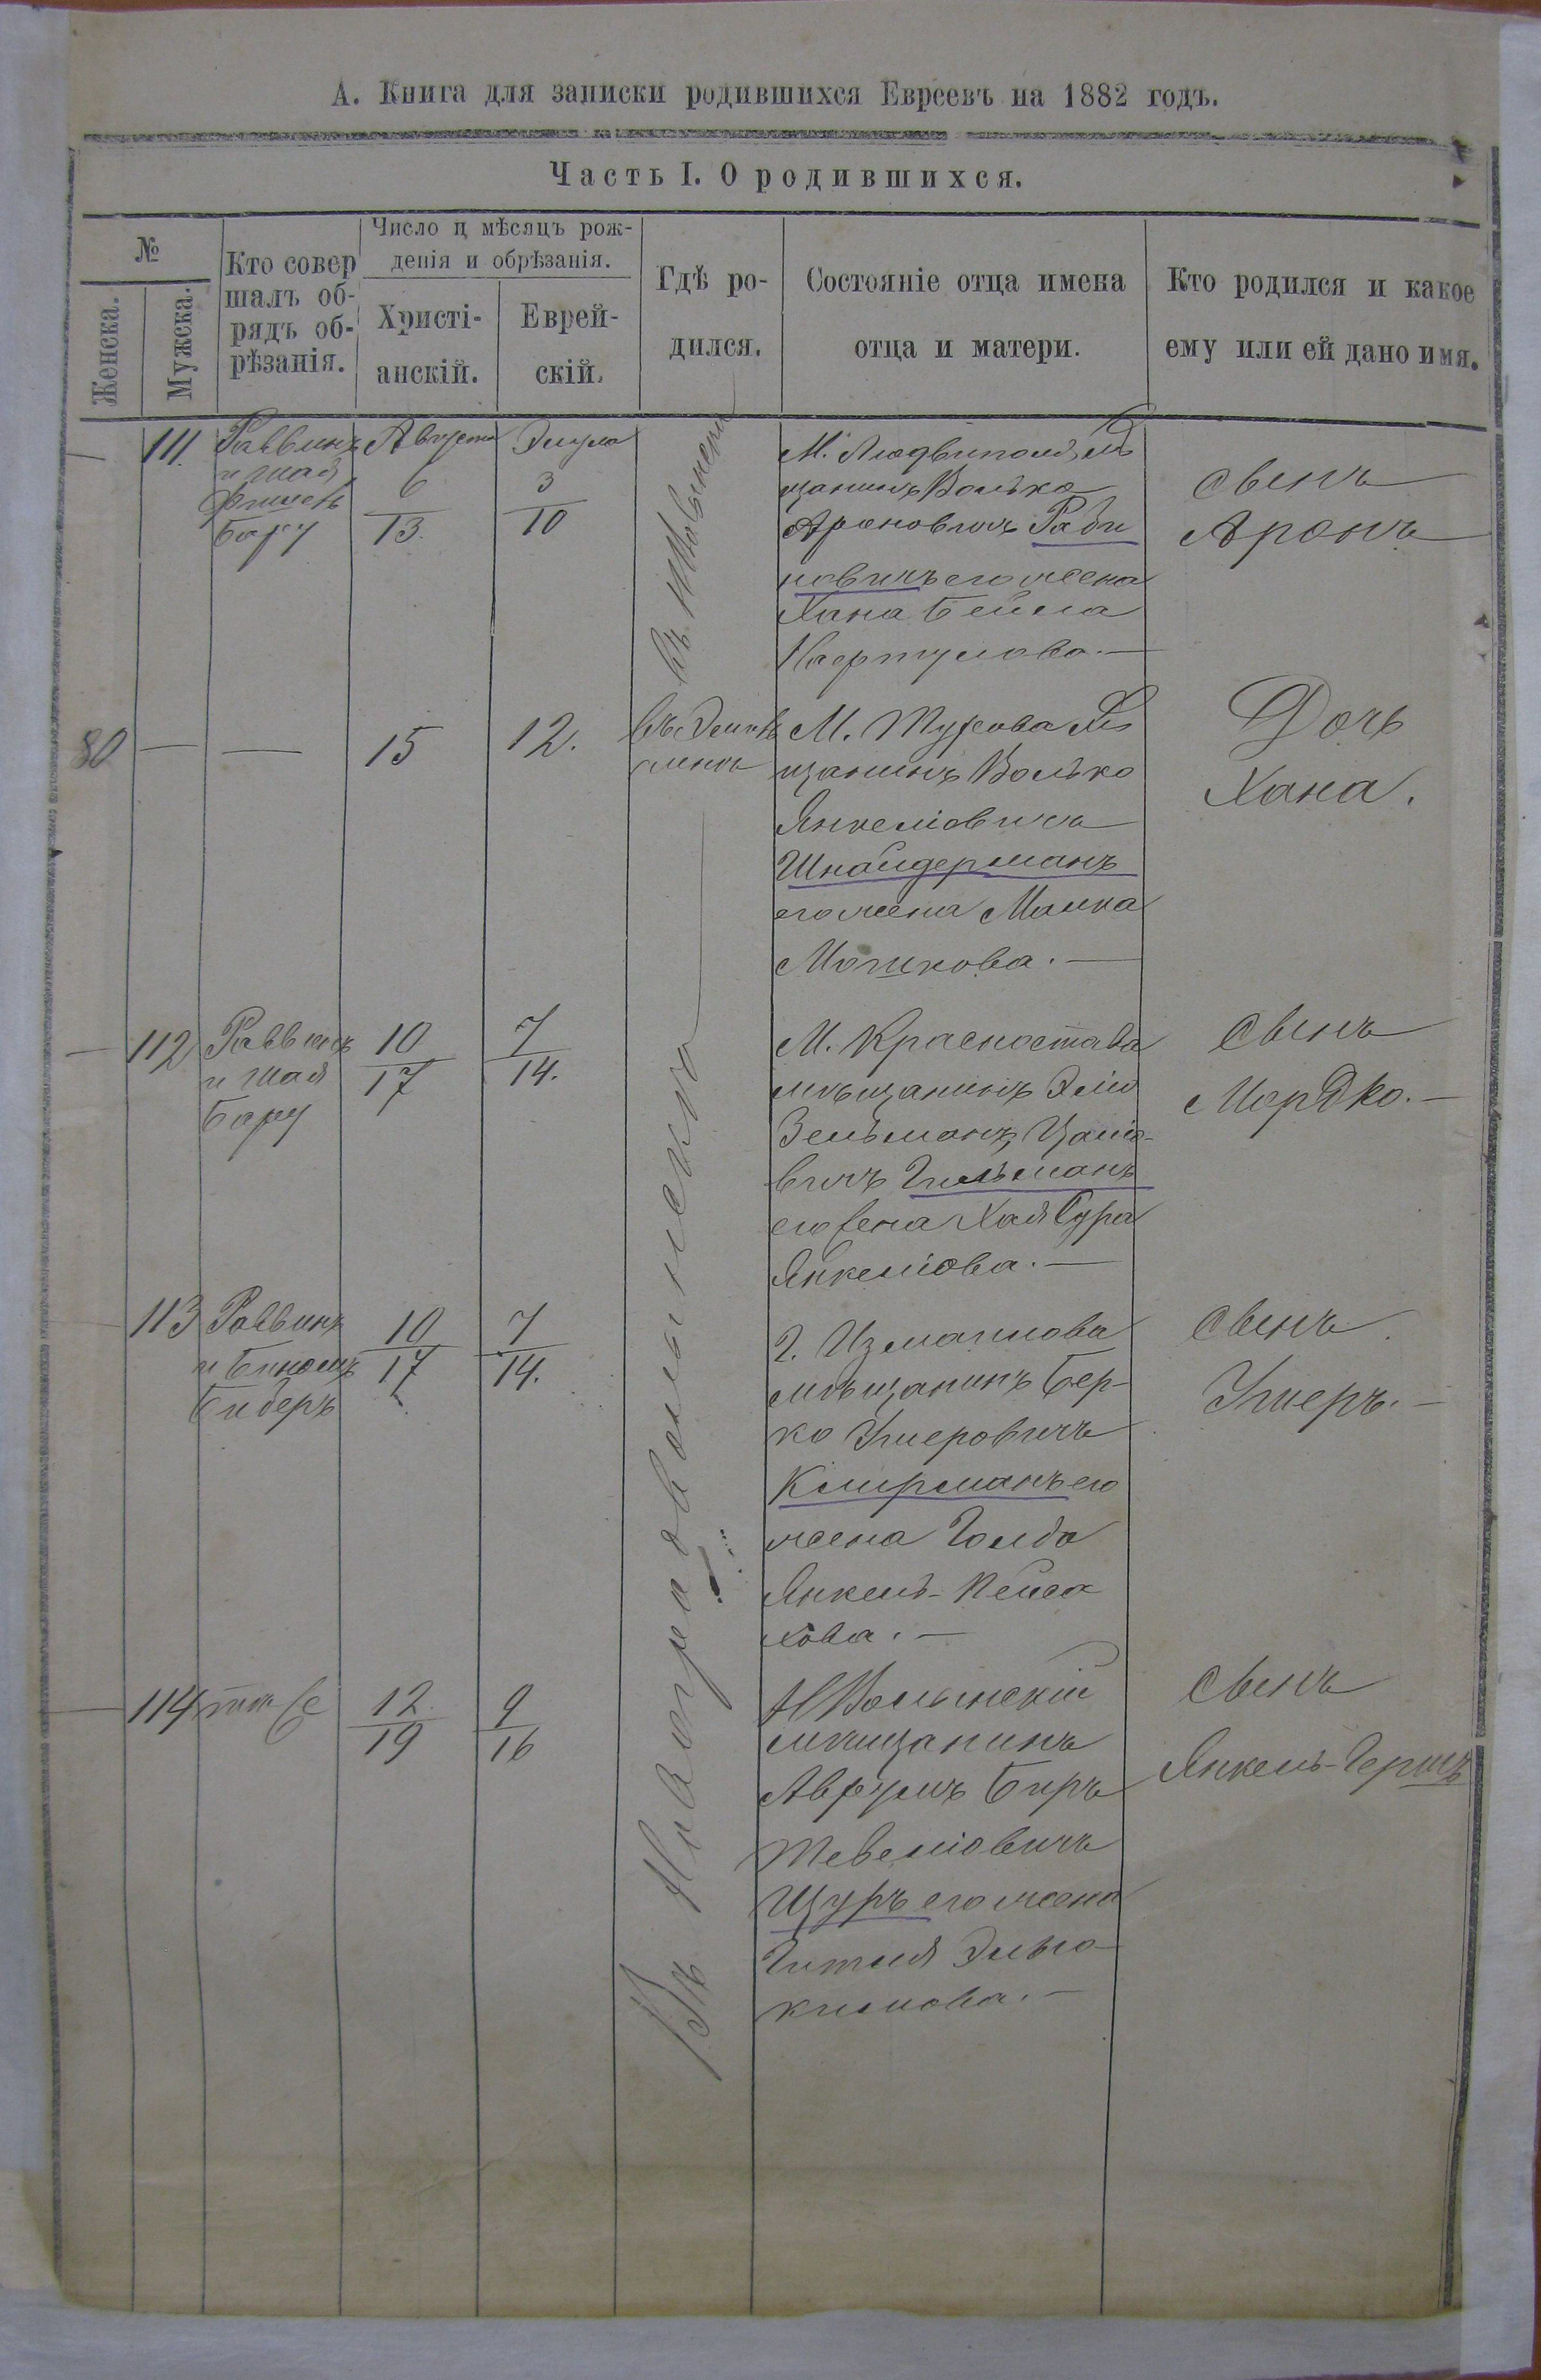 А. Книга для записки родившихся Евреевъ на 1882 годъ.
Часть I. О родившихся.
№
Женска.
Мужска.
Кто совер
шалъ об-
рядъ об-
рѣзанія.
Число и мѣсяцъ рож-
денія и обрѣзанія.
Христі-
анскій.
Еврей-
скій.
Гдѣ ро-
дился.
Состояніе отца имена
отца и матери.
Кто родился и какое
ему или ей дано имя.
—
111.
Раввинъ
и Шая
Фишель
Бару
Августа
6
13.
Элула
3
10
М. Людвиполь, мѣ
щанинъ Волько
Ароновичъ Раби
новичъ его жена
Хана Бейла
сынъ
Аронъ
80
—
—
15
12.
М. Турова мѣ
щанинъ Волько
Янкеліовичъ
Шнайдерманъ
его жена Малка
Мошкова.—
Дочь
Хана.
—
112
Раввинъ
и Шая
Бару
10
17
7
14.
М. Красностава
мѣщанинъ Эліо
Зельманъ
вичъ Гильманъ
его жена Хая Сура
Янкеліова.—
сынъ
Мордко.—
113
Раввинъ
и Биномъ
Биберъ
10
17
7
14.
Г. Измаилова
мѣщанинъ Бер-
ко Ушеровичъ
Клирманъ его
жена Голда
Янкель-Пейса
хова.—
сынъ
Ушеръ.—
—
114
12
19
9
16
Въ Новоградволынске
НВолынскій
мѣщанинъ
Аврумъ Беръ
Тевеліовичъ
Щуръ его жена
Гитля Элью-
кимова.—
сынъ
Янкель-Гершъ